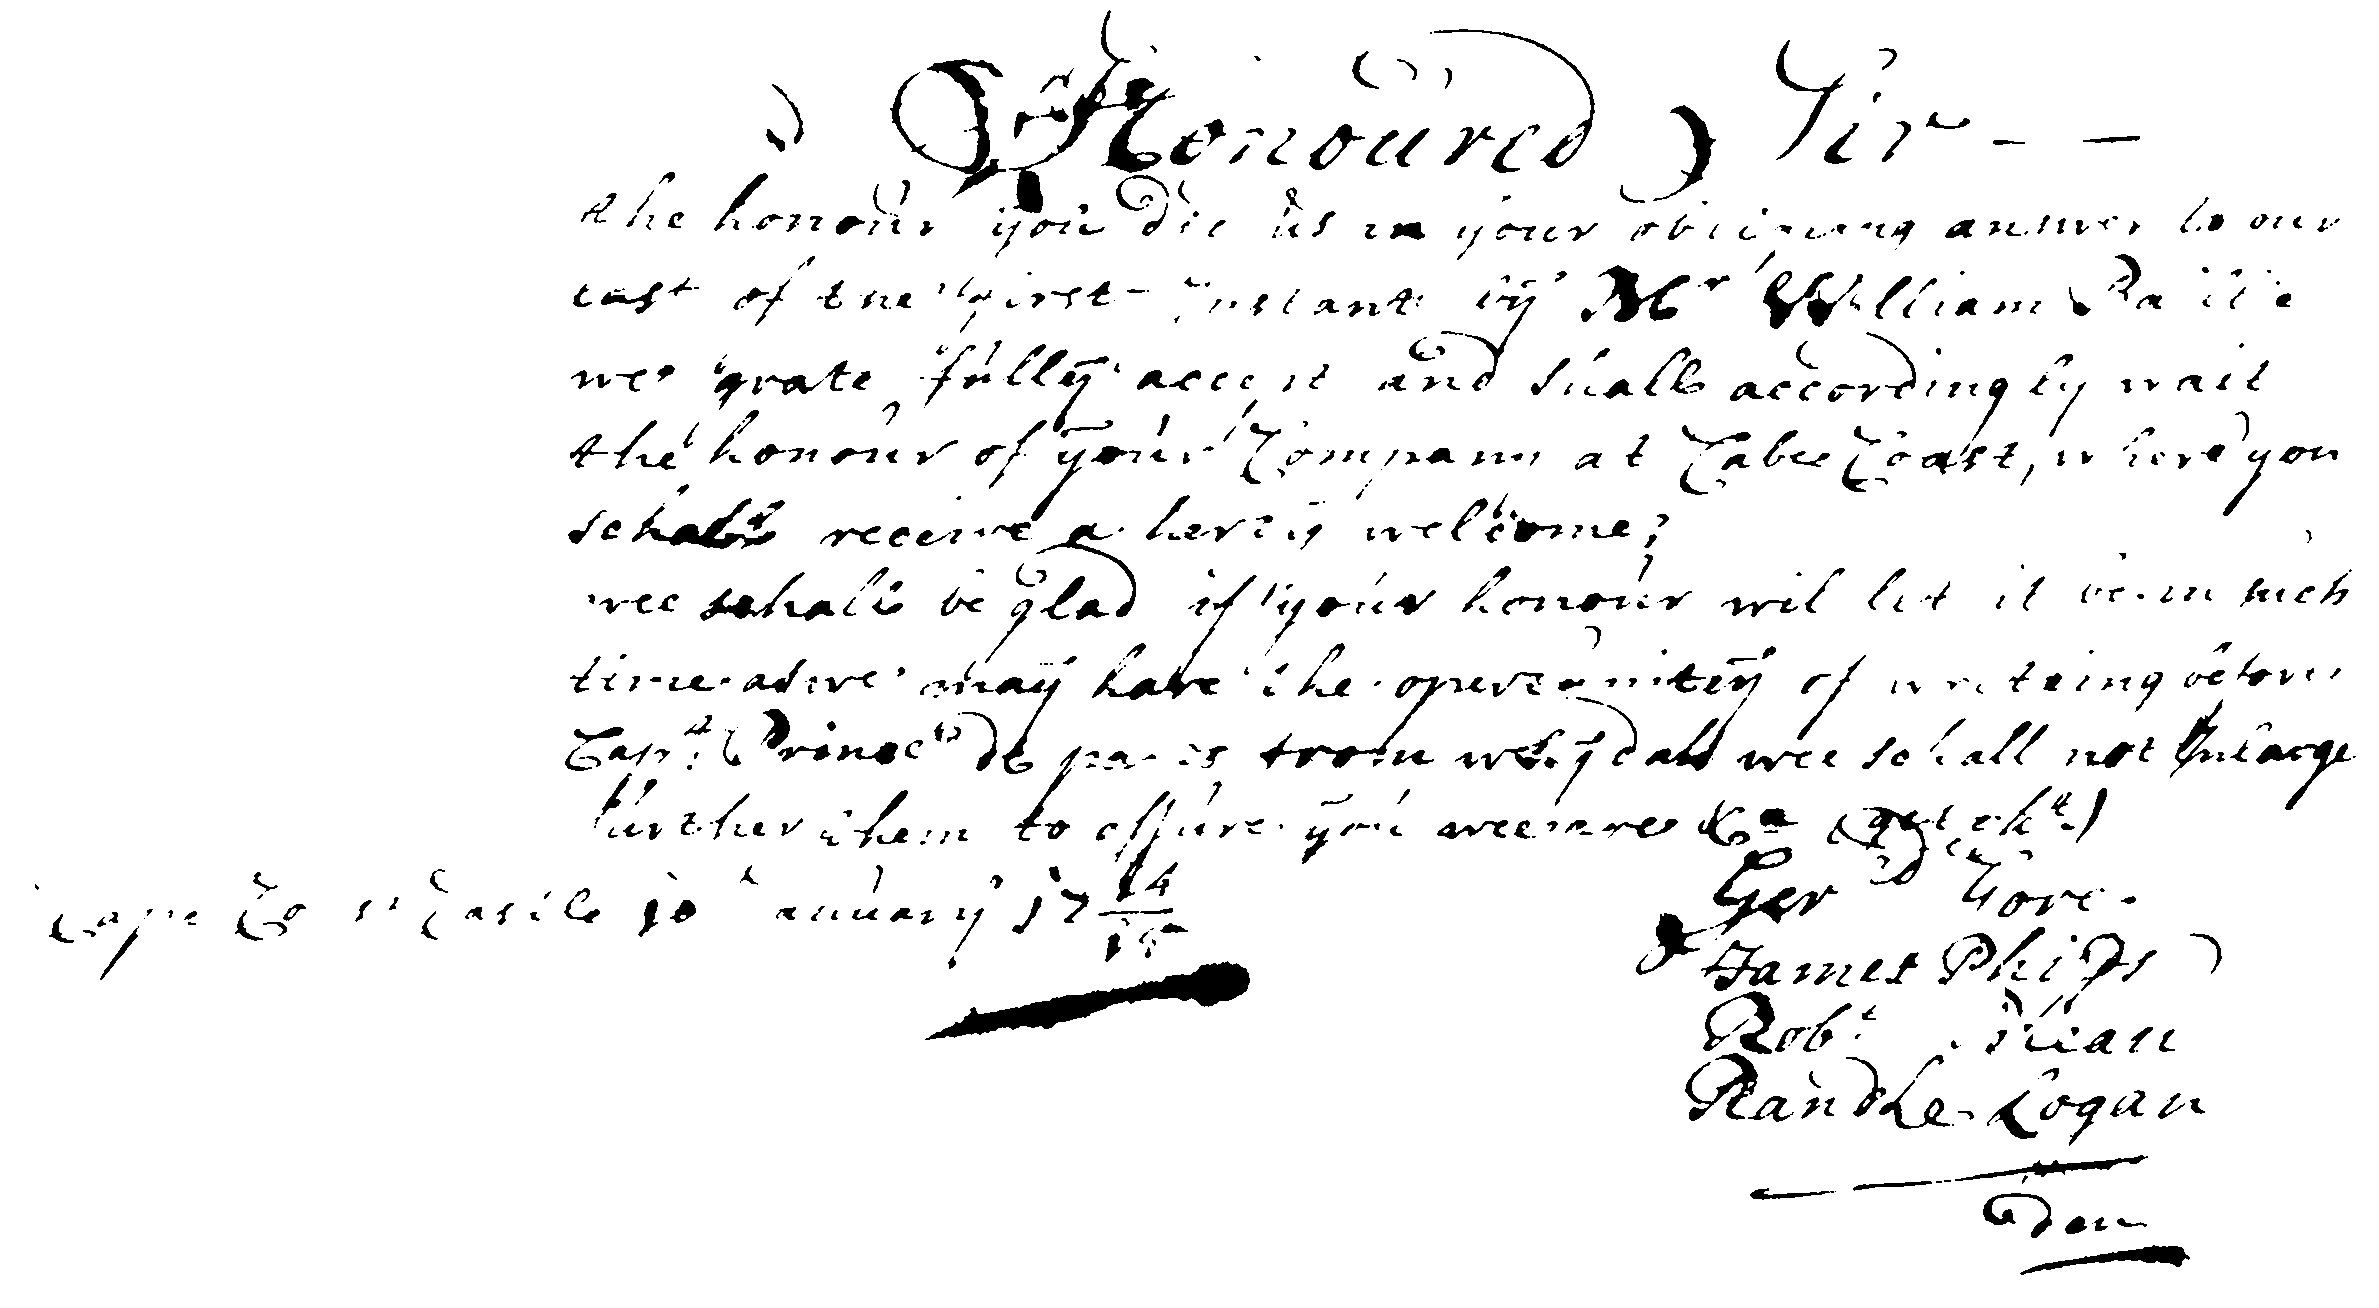 Honoured Sir - -
the honour you did us in your obligeing answer to our
last of the first Instant by Mr William Baillie
wee gratefully accept and shall accordingly wait
the honour of your Company at Cabo Coast, where you
schall receive a herty welcome;
wee schall be glad if your honour wil let it be in such
time as we may have the opertunitiy of writeing before
Capt. Prince departs from whydah wee schall not Enlarge
further them to assure you wee are &a (get.ekt.)
Gerd Gore.
Cape Cost Castle 10 January 17 14/15
James Phips
Robt.
Randle Logan